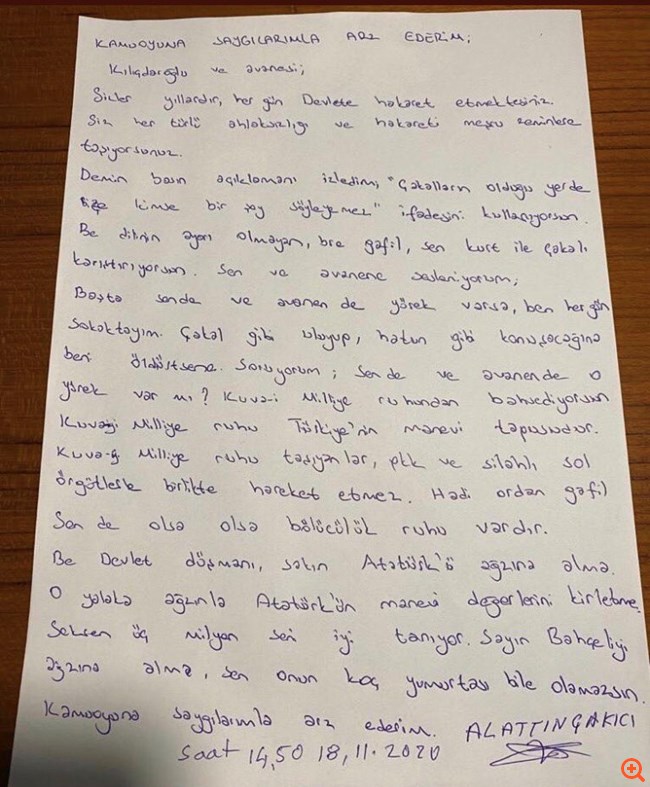 KAMUOYUNA SAYGILARIMLA ARZ EDERİM;
Kılıçdaroğlu ve avanesi;
Sizler yıllardır, her gün Devlete hakaret etmektesiniz.
Siz her türlü ahlaksızlığı ve hakareti meşru zeminlere
taşıyorsunuz.
Demin basın açıklamanı izledim; "Çakalların olduğu yerde
bize kimse bir şey söyleyemez" ifadesini kullanıyorsun.
Be dilinin ayarı olmayan, bre gafil, sen kurt ile çakalı
karıştırıyorsun. Sen ve avanene sesleniyorum;
Başta sende ve avanen de yürek varsa, ben her gün
sokaktayım. Çakal gibi uluyup, hatun gibi konuşacağına
beni öldürtsene. Soruyorum; Sen de ve avanende o
yürek var mı? Kuva-i Milliye ruhundan bahsediyorsun
Kuvayi Milliye ruhu Türkiye'nin manevi tapusudur.
Kuva-yi Milliye ruhu taşıyanlar, pkk ve silahlı sol
örgütlerle birlikte hareket etmez. Hadi ordan gafil
Sen de olsa olsa bölücülük ruhu vardır.
Be Devlet düşmanı, sakın Atatürk'ü ağzına alma.
O yalaka ağzınla Atatürk'ün manevi değerlerini kirletme.
Seksen üç milyon seni iyi tanıyor. Sayın Bahçeliyi
ağzına alma, sen onun koç yumurtası bile olamazsın.
Kamuoyuna saygılarımla arz ederim. ALATTİN ÇAKICI
saat 14,50 18,11.2020